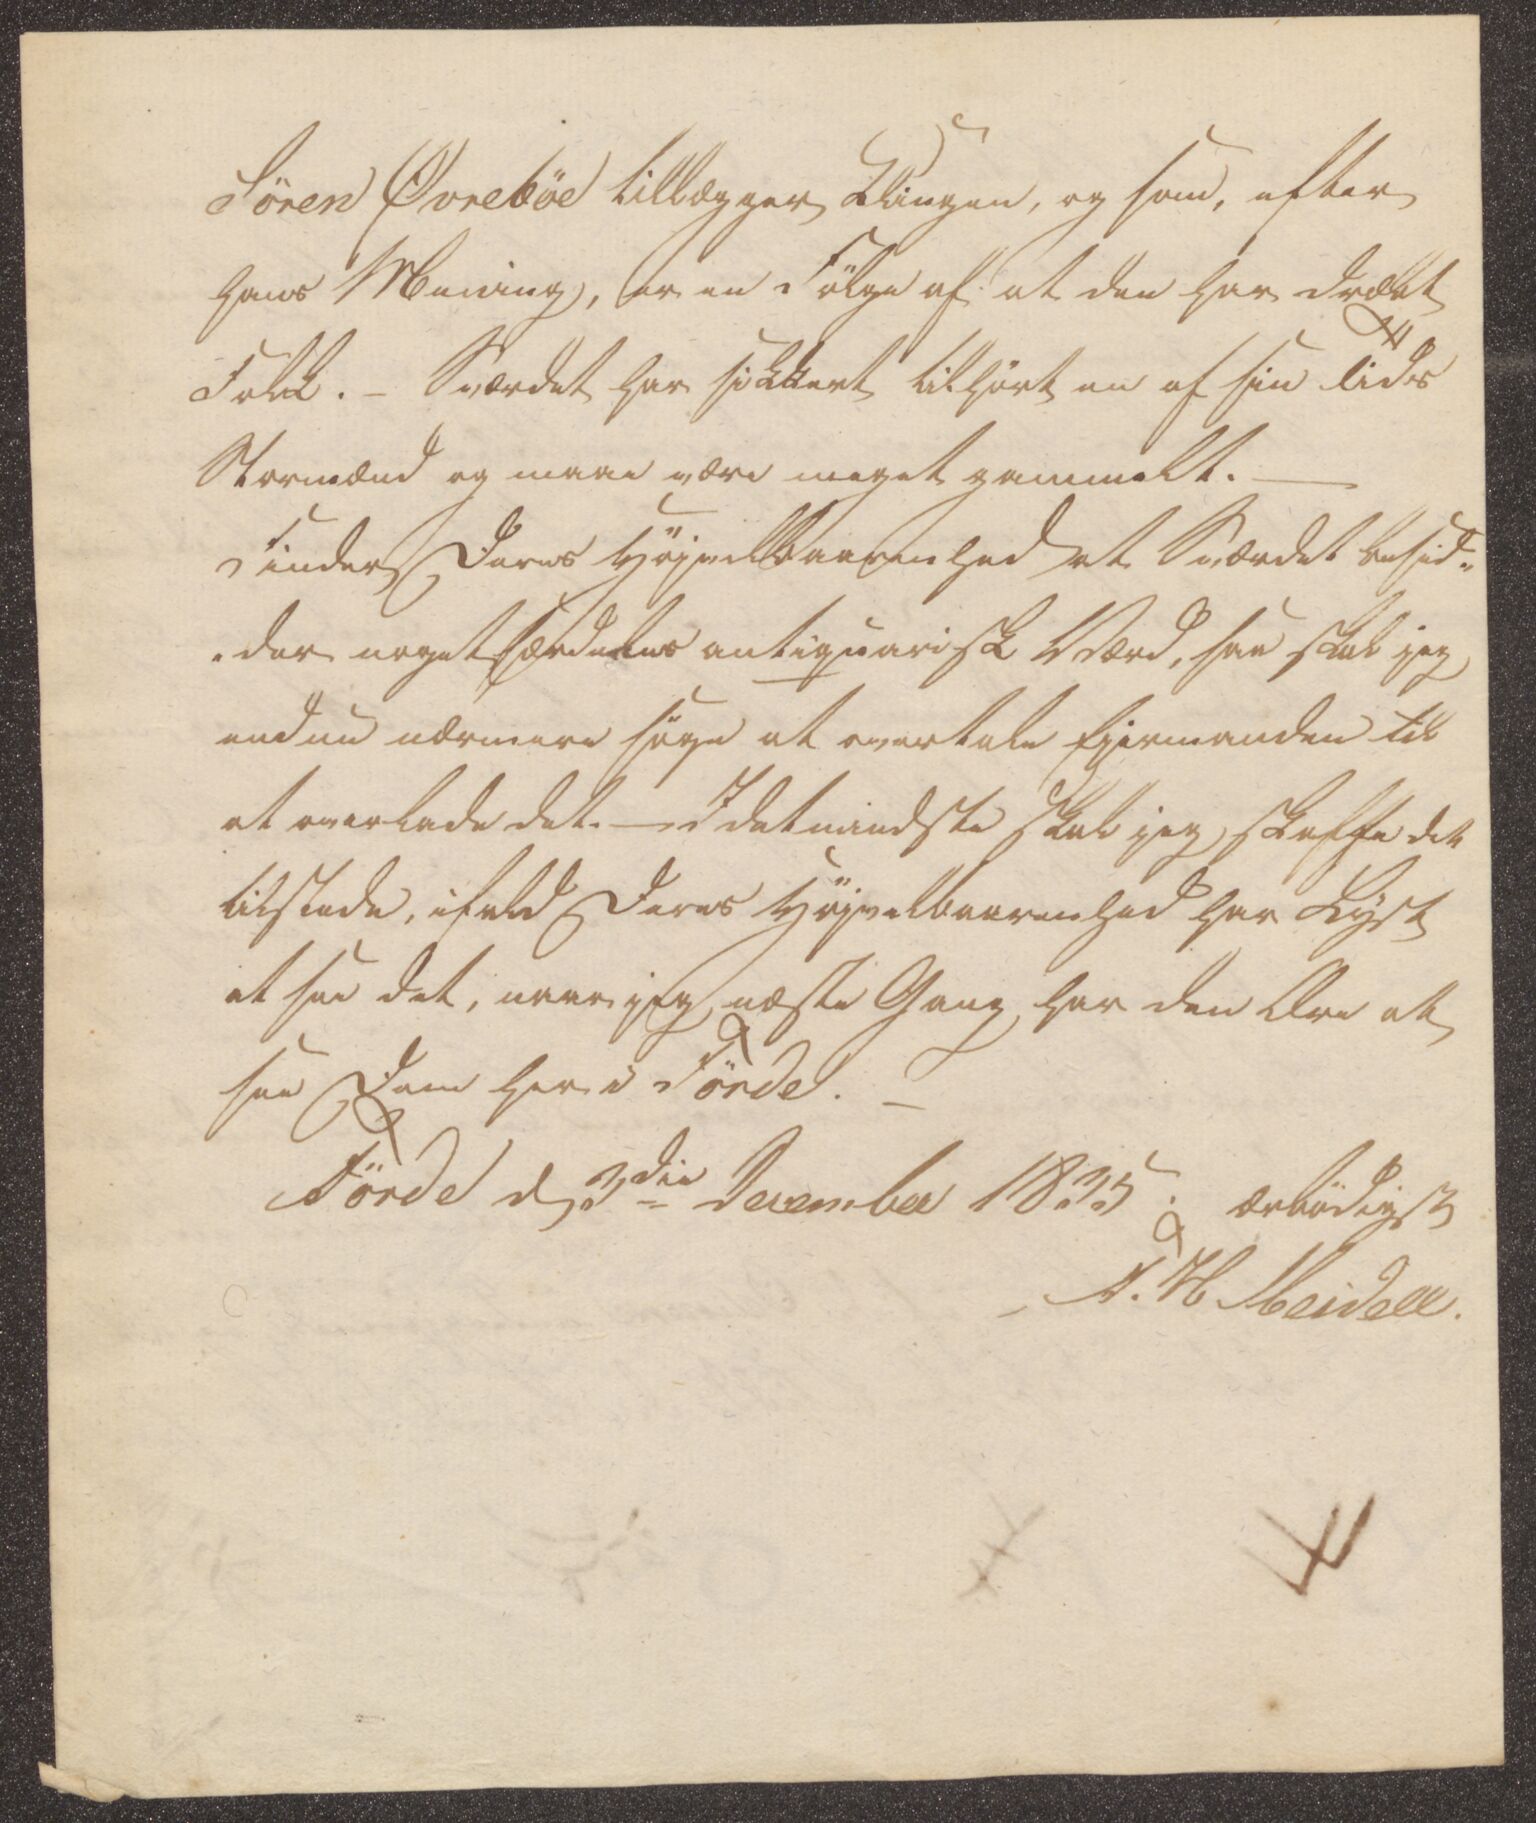 Sören Øvreböe tillægger Klingen, og som, efter
hans Mening, er en Fölge af at den har dræbt
Folk. – Sværdet har sikkert tilhört en af sin Tids
Stormænd og maae være meget gammelt. —
Finder Deres Höjvelbaarenhed at Sværdet besid-
-der noget særdeles antiquarisk Værd, saa skal jeg
endnu nærmere söge at overtale Ejermanden til
at overlade det. — Idetmindste skal jeg skaffe det
tilstede, ifald Deres Höjvelbaarenhed har Lyst
at see det, naar jeg næste Gang har den Ære at
see Dem her i Förde. –
Förde d. 3die December 1835. ærbödigst
F. H Meidell.